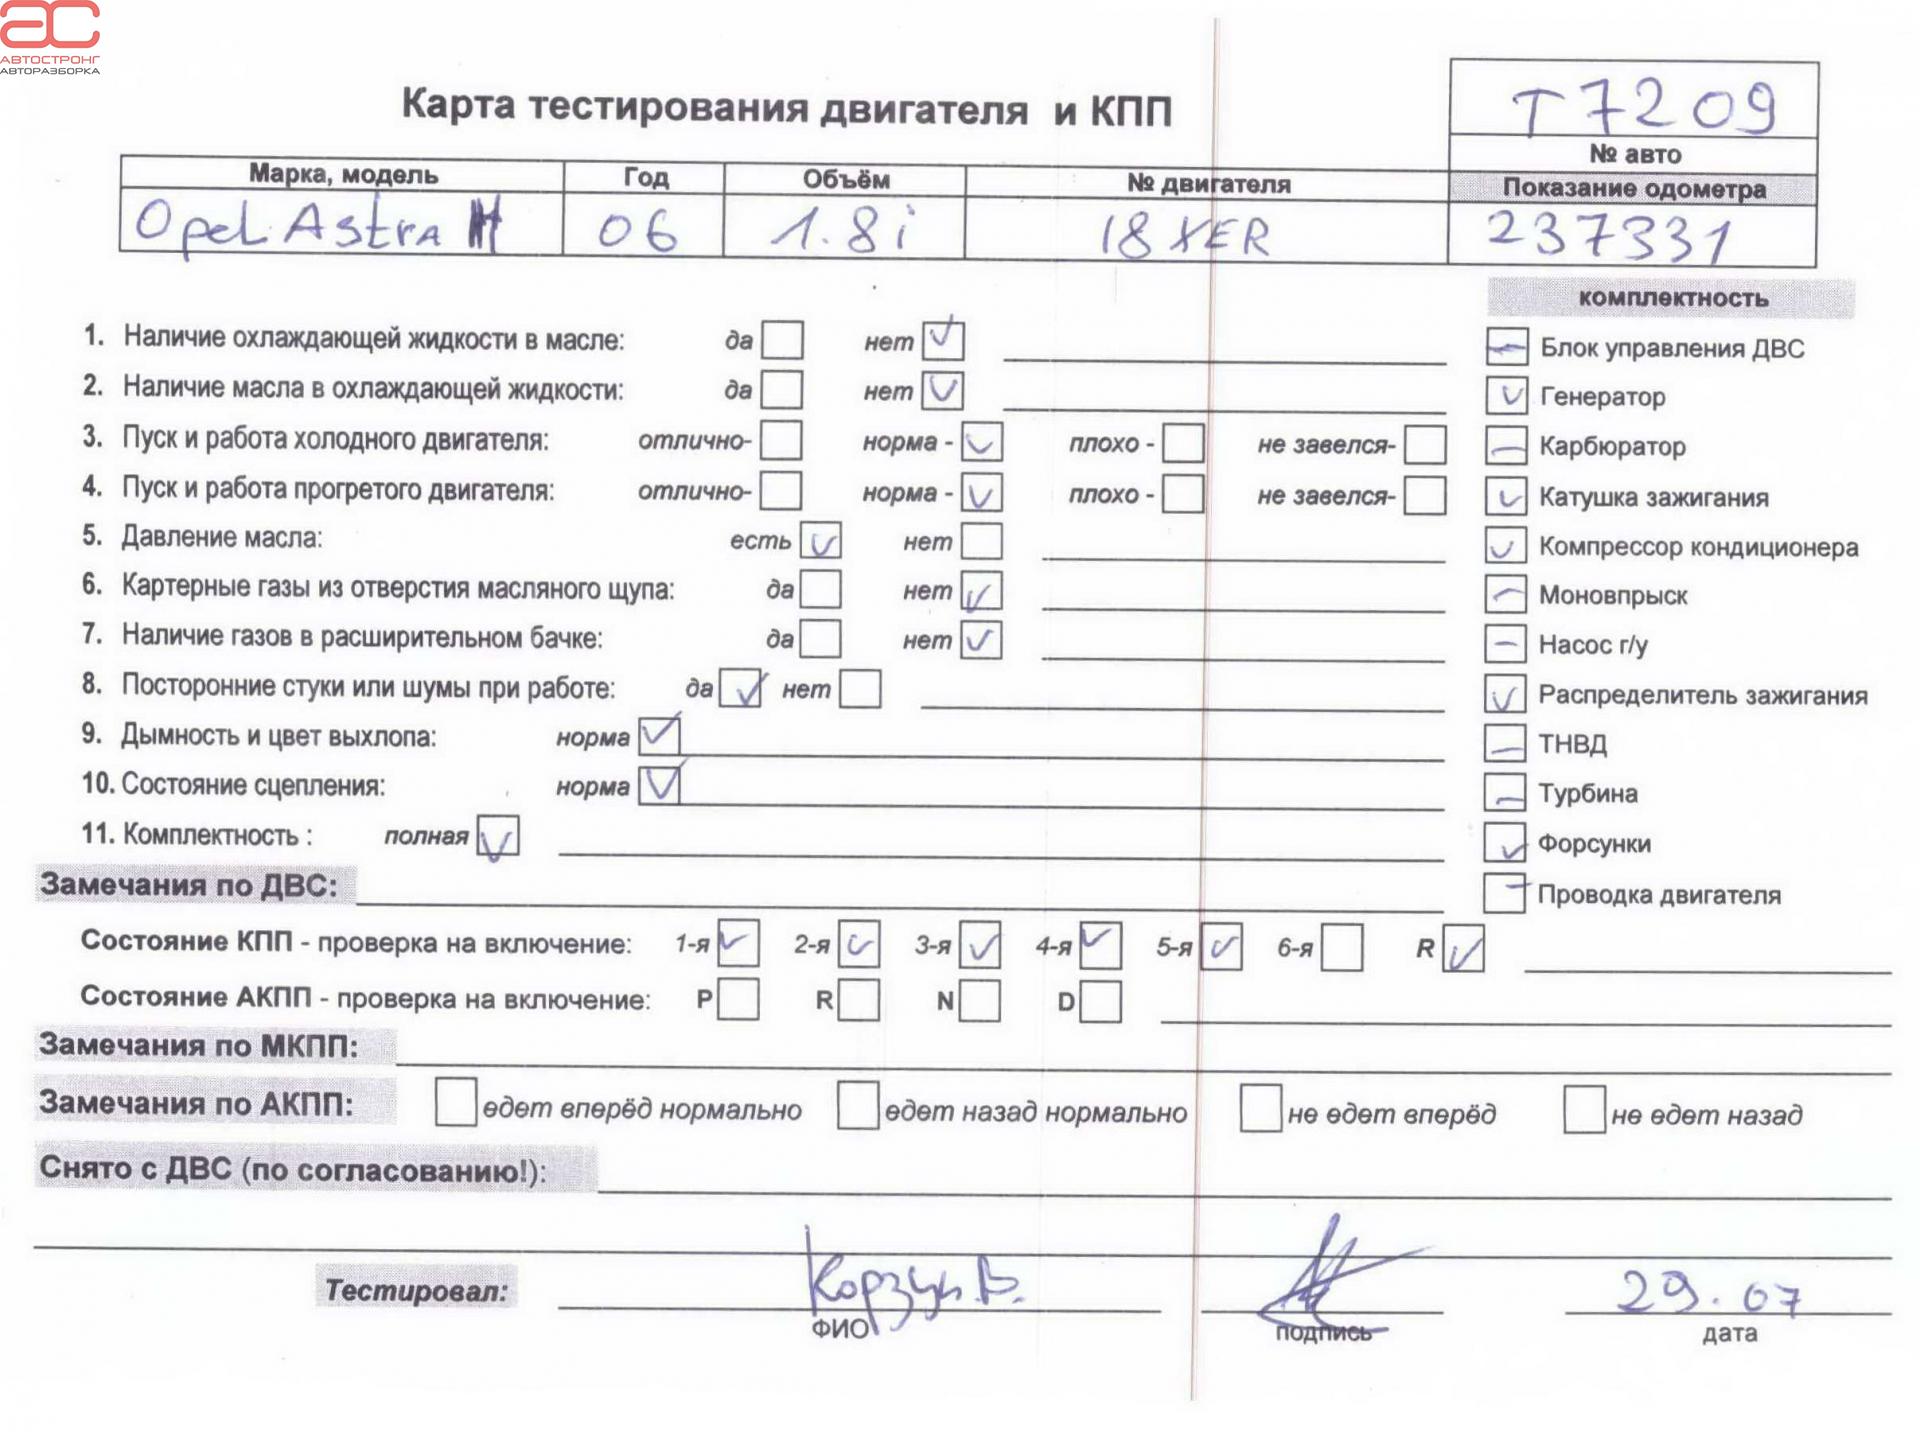 АС
АВТОСТРОНГ
АВТОРАЗБОРКА
Карта тестирования двигателя и КПП
T7209
№ авто
Марка, модель Год Объём № двигателя Показание одометра
Opel Astra H 06 1.8i 18XER 237331
комплектность
1. Наличие охлаждающей жидкости в масле: да нет
2. Наличие масла в охлаждающей жидкости: да нет
3. Пуск и работа холодного двигателя: отлично- норма - плохо - не завелся-
4. Пуск и работа прогретого двигателя: отлично- норма - плохо - не завелся-
5. Давление масла: есть нет
6. Картерные газы из отверстия масляного щупа: да нет
7. Наличие газов в расширительном бачке: да нет
8. Посторонние стуки или шумы при работе: да нет
9. Дымность и цвет выхлопа: норма
10. Состояние сцепления: норма
11. Комплектность : полная
Блок управления ДВС
Генератор
Карбюратор
Катушка зажигания
Компрессор кондиционера
Моновпрыск
Насос г/у
Распределитель зажигания
ТНВД
Турбина
Форсунки
Проводка двигателя
Замечания по ДВС:
Состояние КПП - проверка на включение: 1-я 2-я 3-я 4-я 5-я 6-я R
Состояние АКПП - проверка на включение: P R N D
Замечания по МКПП:
Замечания по АКПП: едет вперёд нормально едет назад нормально не едет вперёд не едет назад
Снято с ДВС (по согласованию!):
Тестировал: Корзун В. 29.07
ФИО подпись дата